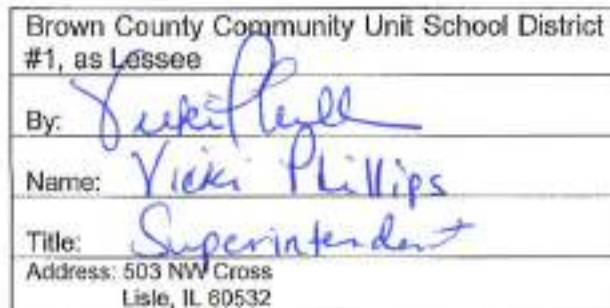 Brown County Community Unit School District
#1, as Lessee
By: Vicki Phill
Name: Vicki Phillips
Title: Superintendent
Address: 503 NW Cross
Lisle, IL 60532